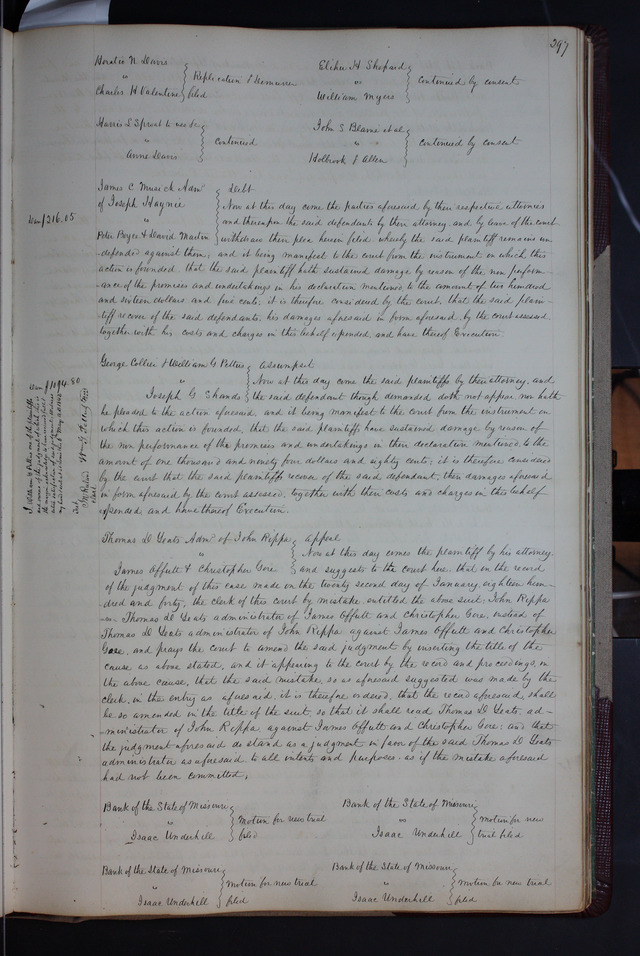 297
Horatio N Davis
"
Charles H Valentine
Replication & Demurrer
filed
Elihu H Shepard
vs
William Myers
continued by consent
Harris L Sproat to use &c
"
Anne Davis
continued
John S Blaine et al
"
Holbrook & Allen
continued by consent
James C Musick Admr
of Joseph Haynie
"
Peter Boyer & David Martin
Debt
Now at this day come the parties aforesaid by their respective attornies
and thereupon the said defendants by their attorney and by leave of the court
withdraw their plea herein filed whereby the said plaintiff remains un-
-defended against them; and it being manifest to the court from the instrument on which this
action is founded that the said plaintiff hath sustained damage by reason of the non perform-
-ance of the promises and undertakings in his declaration mentioned to the amount of two hundred
and sixteen dollars and five cents; it is therefore considered by the court, that the said plain-
-tiff recover of the said defendants, his damages aforesaid in form aforesaid, by the court assessed,
together with his costs and charges in this behalf expended and have thereof Execution
216.05
George Collier & William G Pettus
"
Joseph G Shands
Assumpsit
Now at this day come the said plaintiffs by their attorney, and
the said defendant though demanded doth not appear nor hath
he pleaded to the action aforesaid, and it being manifest to the court from the instrument on
which this action is founded, that the said plaintiffs have sustained damage by reason of
the non performance of the promises and undertakings in their declaration mentioned, to the
amount of one thousand and ninety four dollars and eighty cents; it is therefore considered
by the court that the said plaintiffs recover of the said defendant, their damages aforesaid
in form aforesaid by the court assessed, together with their costs and charges in this behalf
expended and have thereof Execution.
$1094.80
I William G Pettus one of the plaintiffs
Thomas D Yeats Admr of John Rippa
"
James Offutt & Christopher Gore
Appeal
Now at this day comes the plaintiff by his attorney
and suggests to the court here, that on the record
of the judgment of this case made on the twenty second day of January, eighteen hun-
-dred and forty, the clerk of this court by mistake entitled the above suit; John Rippa
vs Thomas D Yeats administrator of James Offutt and Christopher Gore, instead of
Thomas D Yeats administrator of John Rippa against James Offutt and Christopher
Gore, and prays the court to amend the said judgment by inserting the title of the
cause as above stated, and it appearing to the court by the record and proceedings in
the above cause, that the said mistake so as aforesaid suggested was made by the
clerk in the entry as aforesaid, it is therefore ordered, that the record aforesaid, shall
be so amended in the title of the suit, so that it shall read Thomas D Yeats, ad-
-ministrator of John Rippa against James Offutt and Christopher Gore; and that
the judgment aforesaid do stand as a judgment in favor of the said Thomas D Yeats
administrator as aforesaid, to all intents and purposes, as if the mistake aforesaid
had not been committed.
Bank of the State of Missouri
"
Isaac Underhill
Motion for new trial
filed
Bank of the State of Missouri
vs
Isaac Underhill
motion for new
trial filed
Bank of the State of Missouri
"
Isaac Underhill
motion for new trial
filed
Bank of the State of Missouri
"
Isaac Underhill
motion for new trial
filed